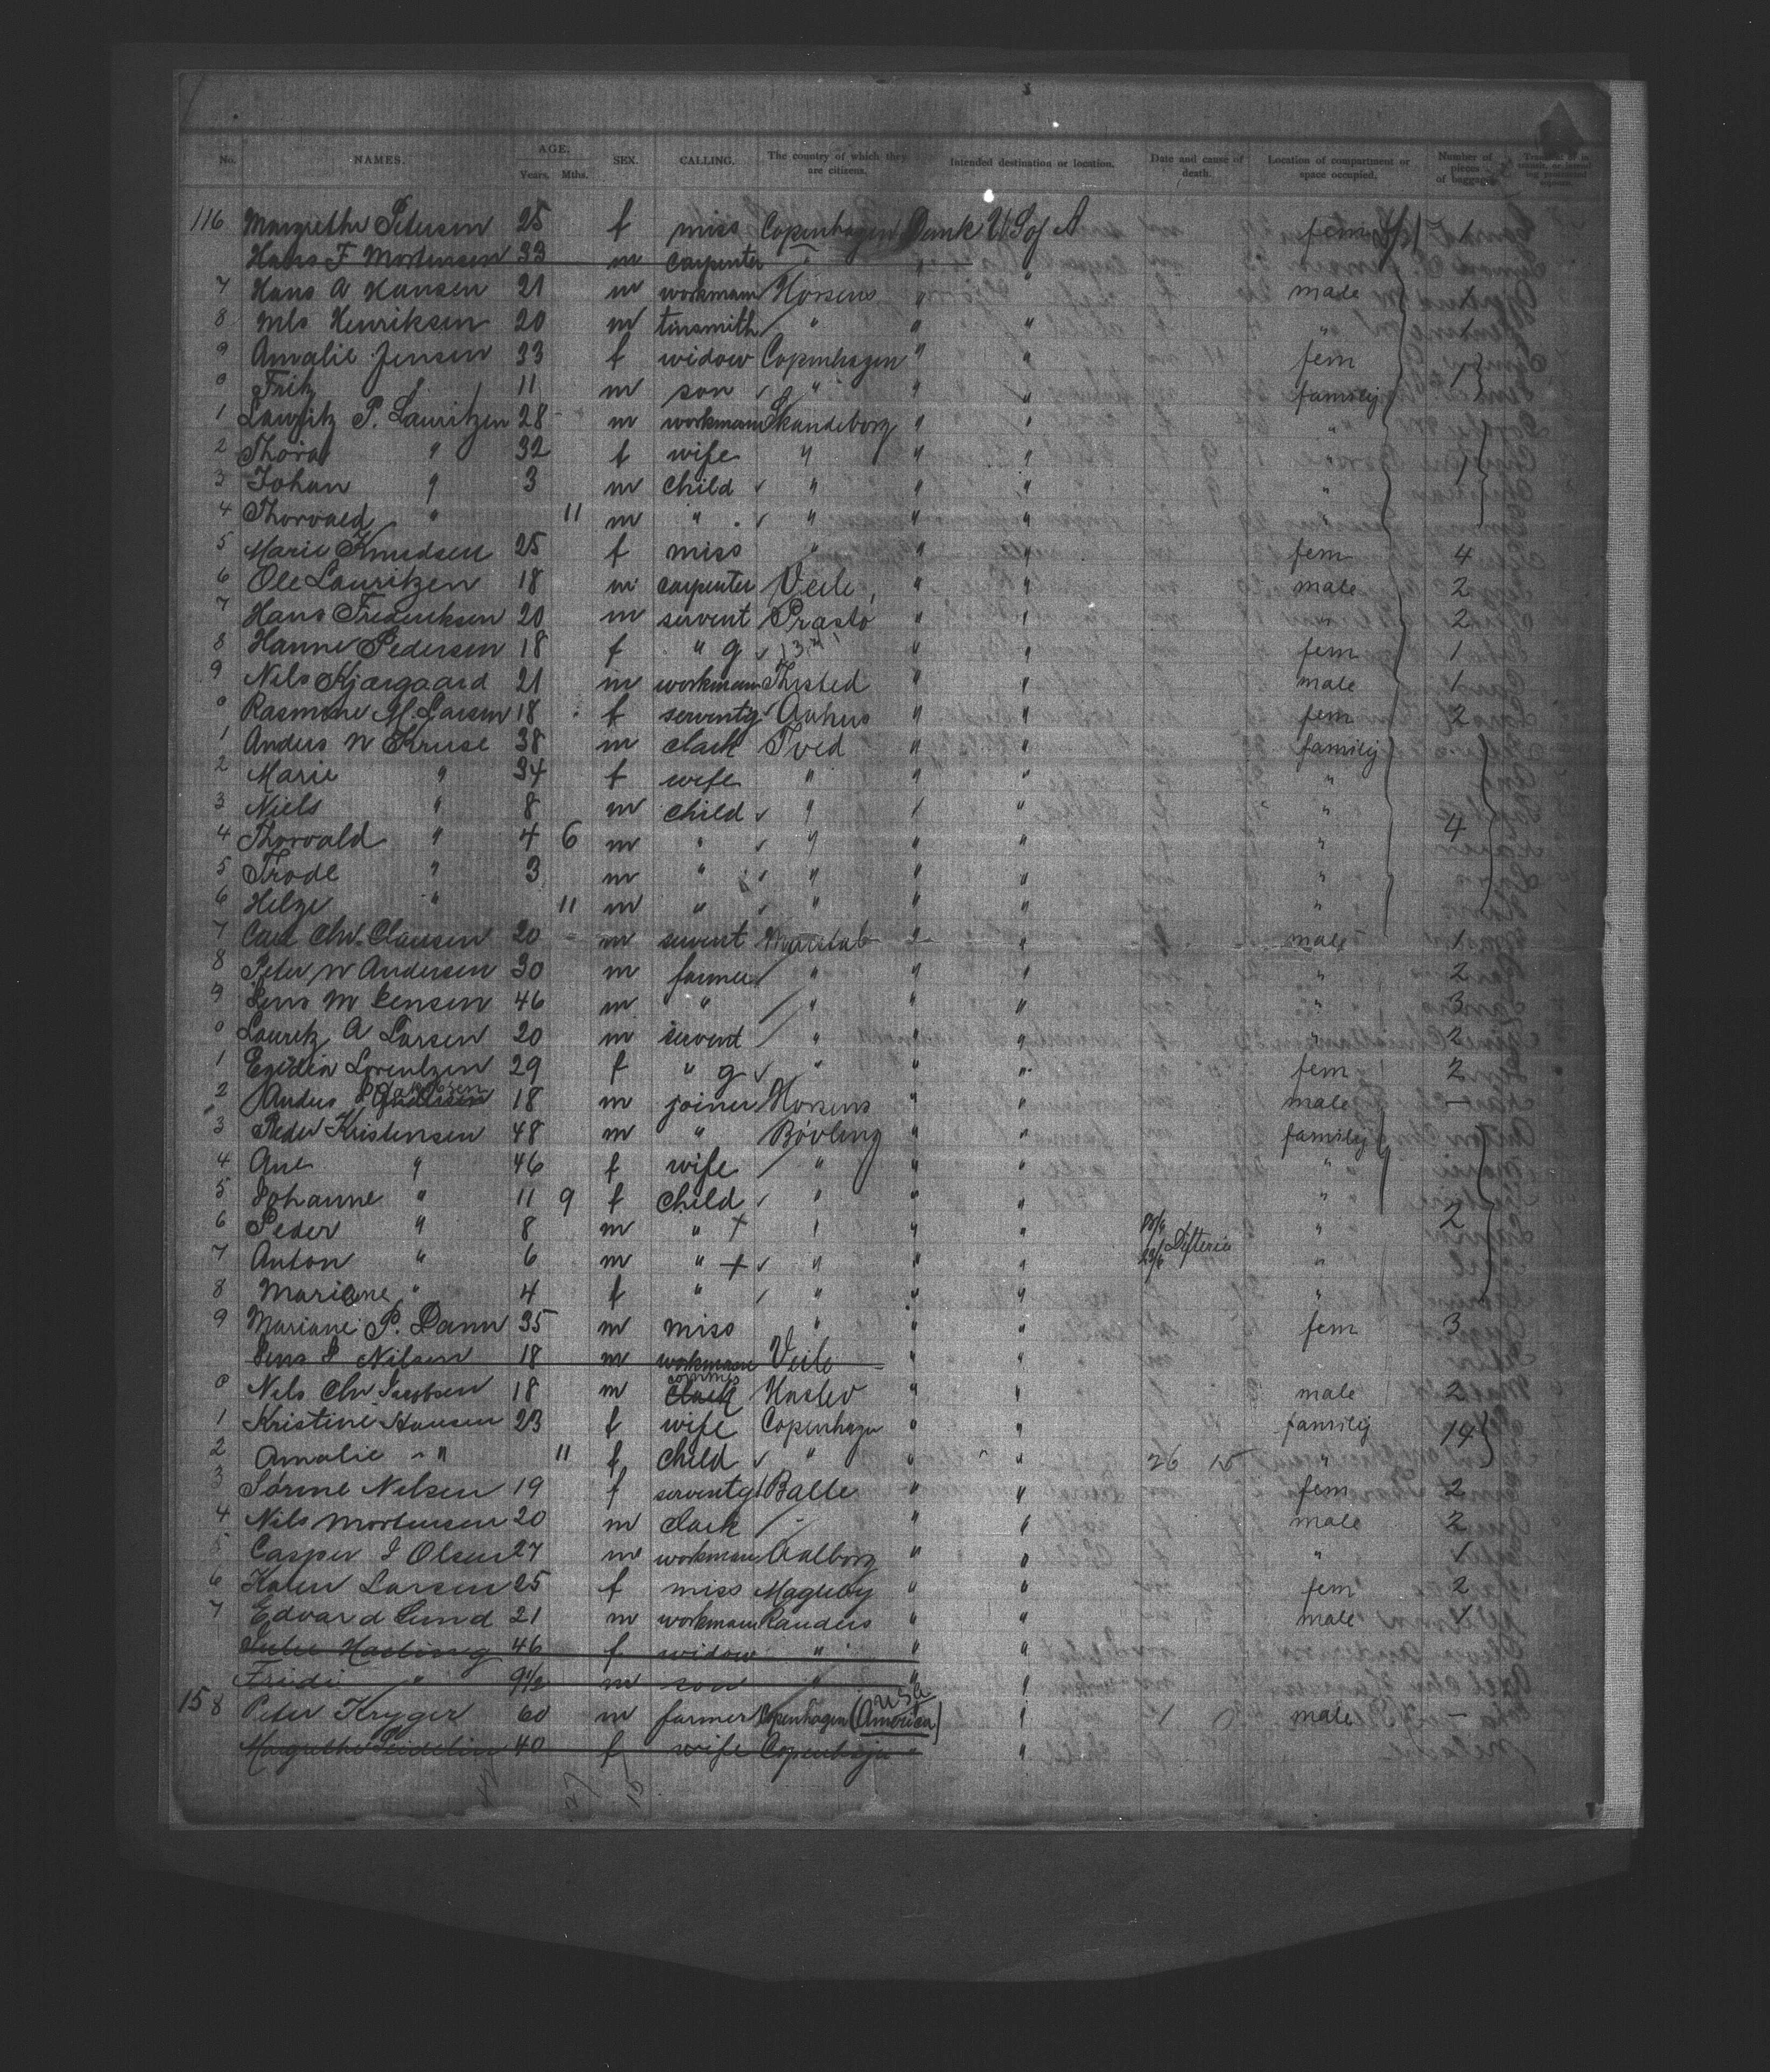 No. NAMES. AGE. Years. Mths. SEX. CALLING. The country of which they are citizens. Intended destination or location. Date and cause of death. Location of compartment or space occupied. Number of pieces of baggage
116 Margrethe Petersen 25 f miss Copenhagen Dmk U S of A fem 1
Hans F Mortensen 33 m carpenter " " "
7 Hans A Hansen 21 m workmann Horsens " " male 1
8 Nils Henriksen 20 m tinsmith " " " " 1
9 Amalie Jensen 33 f widow Copenhagen " " fem
0 Fritz " 11 m son " " " familij 1
1 Lauritz P. Lauritzen 28 m workmann Skandeborg " " "
2 Thora " 32 f wife " " "
3 Johan " 3 m child " " " " 1
4 Thorvald " 11 m " " " " "
5 Marie Knudsen 25 f miss " " " fem 4
6 Ole Lauritzen 18 m carpenter Veile " " male 2
7 Hans Frederiksen 20 m servent Prasto " " " 2
8 Hanne Pedersen 18 f " g " " fem 1
9 Nils Kjærgaard 21 m workmann Thisted " " male 1
0 Rasmine M. Larsen 18 f serventg Aarhus " " fem 2
1 Anders N Kruse 38 m clark Tved " " familij
2 Marie " 34 f wife " " " "
3 Niels " 8 m child " " " "
4 Thorvald " 4 6 m " " " " " 4
5 Frode " 3 m " " " " "
6 Helge " 11 m " " " " "
7 Carl Chr. Clausen 20 m servent Marstal " " male 1
8 Peter N Andersen 30 m farmer " " " " 2
9 Jens M Jensen 46 m " " " " " 3
0 Lauritz A Larsen 20 m servent " " " " 2
1 Egidia Lorentzen 29 f " g " " " fem 2
2 Anders 18 m joiner Horsens " " male —
3 Peder Kristensen 48 m " Bövling " " familij
4 Ane " 46 f wife " " " "
5 Johanne " 11 9 f child " " " "
6 Peder " 8 m " + " " " " 2
7 Anton " 6 m " + " " " 23/6 Difteria "
8 Mariane " 4 f " " " " "
9 Mariane P. Damm 35 m miss " " " fem 3
Jens P Nilsen 18 m workmann Veile " "
0 Nils Chr Jacobsen 18 m clark Haslev " " male 2
1 Kristine Hansen 23 f wife Copenhagen " " familij 14
2 Amalie " 11 f child " " " 26 15 "
3 Sörine Nilsen 19 f serventg Balle " " fem 2
4 Nils Mortensen 20 m clark " " " male 2
5 Casper J Olsen 27 m workmann Aalborg " " " 1
6 Karen Larsen 25 f miss Magleby " " fem 2
7 Edvard Lund 21 m workmann Randers " " male 1
46 f widow " " "
9½ m son " " "
158 Peter Kryger 60 m farmer Copenhagen (America) USA " male —
Magrethe 40 f wife Copenhagen " "